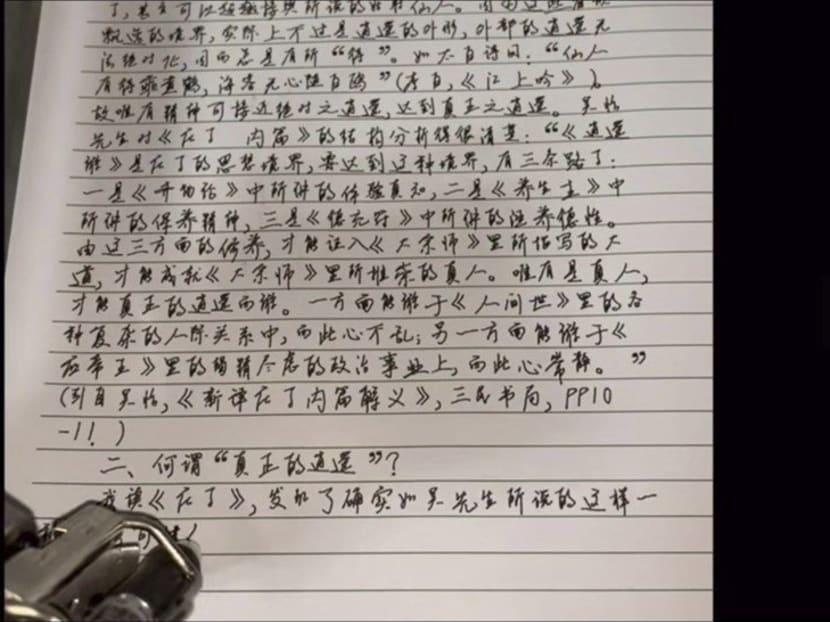 了, 甚至可以超越接舆所说的姑射仙人。因由这超
飘逸的境界, 实际上不过是逍遥的外形, 外部的逍遥无
法绝对化, 因而总是有所“待”。如太白诗曰: “仙人
有待乘黄鹤, 海客无心随白鸥” (李白, 《江上吟》)。
故唯有精神可接近绝对之逍遥, 达到真正之逍遥。吴怡
先生对《庄子 内篇》的结构分析得很清楚: “《逍遥
游》是庄子的思想境界, 要达到这种境界, 有三条路子:
一是《齐物论》中所讲的体验真知, 二是《养生主》中
所讲的保养精神, 三是《德充符》中所讲的涵养德性。
由这三方面的修养, 才能证入《大宗师》里所描写的大
道, 才能成就《大宗师》里所推崇的真人。唯有是真人,
才能真正的逍遥而游。一方面能游于《人间世》里的各
种复杂的人际关系中, 而此心不乱; 另一方面能游于《
应帝王》里的竭精尽虑的政治事业上, 而此心常静。”
(引自吴怡, 《新译庄子内篇解义》, 三民书局, PP10
-11)
二、何谓“真正的逍遥”?
我读《庄子》, 发现了确实如吴先生所说的这样一